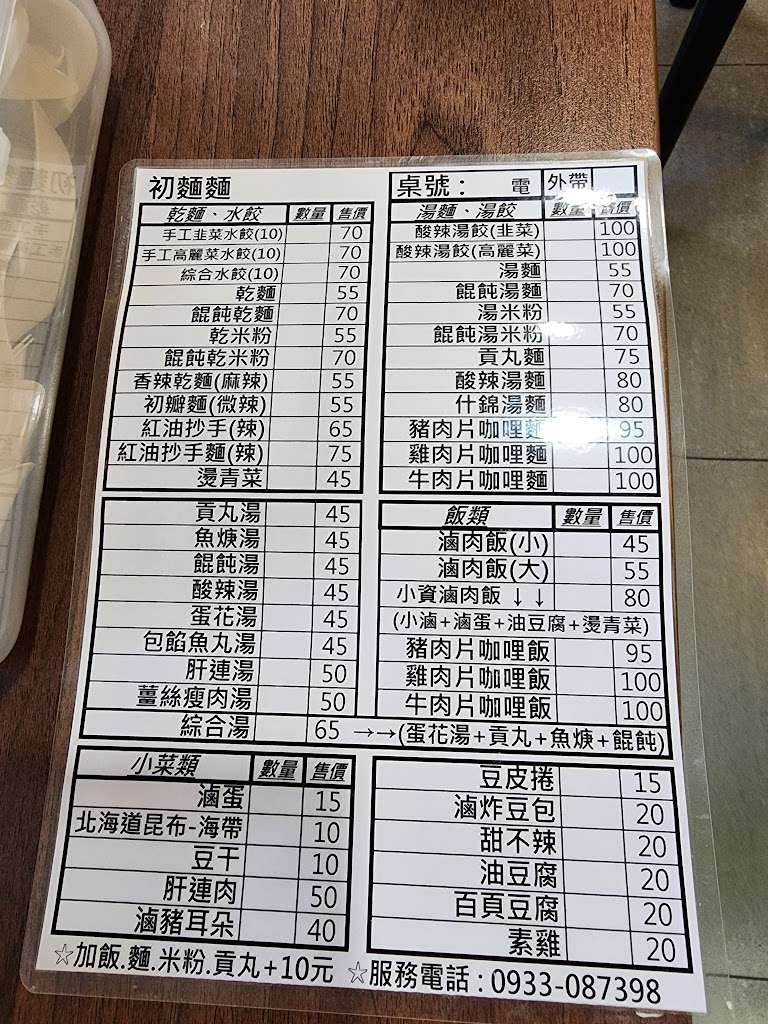 初麵麵
桌號： 電 外帶
乾麵、水餃 數量 售價
手工韭菜水餃(10) 70
手工高麗菜水餃(10) 70
綜合水餃(10) 70
乾麵 55
餛飩乾麵 70
乾米粉 55
餛飩乾米粉 70
香辣乾麵(麻辣) 55
初瓣麵(微辣) 55
紅油抄手(辣) 65
紅油抄手麵(辣) 75
燙青菜 45
湯麵、湯餃 數量 售價
酸辣湯餃(韭菜) 100
酸辣湯餃(高麗菜) 100
湯麵 55
餛飩湯麵 70
湯米粉 55
餛飩湯米粉 70
貢丸麵 75
酸辣湯麵 80
什錦湯麵 80
豬肉片咖哩麵 95
雞肉片咖哩麵 100
牛肉片咖哩麵 100
貢丸湯 45
魚焿湯 45
餛飩湯 45
酸辣湯 45
蛋花湯 45
包餡魚丸湯 45
肝連湯 50
薑絲瘦肉湯 50
綜合湯 65 →→(蛋花湯+貢丸+魚焿+餛飩)
飯類 數量 售價
滷肉飯(小) 45
滷肉飯(大) 55
小資滷肉飯 ↓↓ 80
(小滷+滷蛋+油豆腐+燙青菜)
豬肉片咖哩飯 95
雞肉片咖哩飯 100
牛肉片咖哩飯 100
小菜類 數量 售價
滷蛋 15
北海道昆布-海帶 10
豆干 10
肝連肉 50
滷豬耳朵 40
豆皮捲 15
滷炸豆包 20
甜不辣 20
油豆腐 20
百頁豆腐 20
素雞 20
☆加飯.麵.米粉.貢丸+10元 ☆服務電話：0933-087398